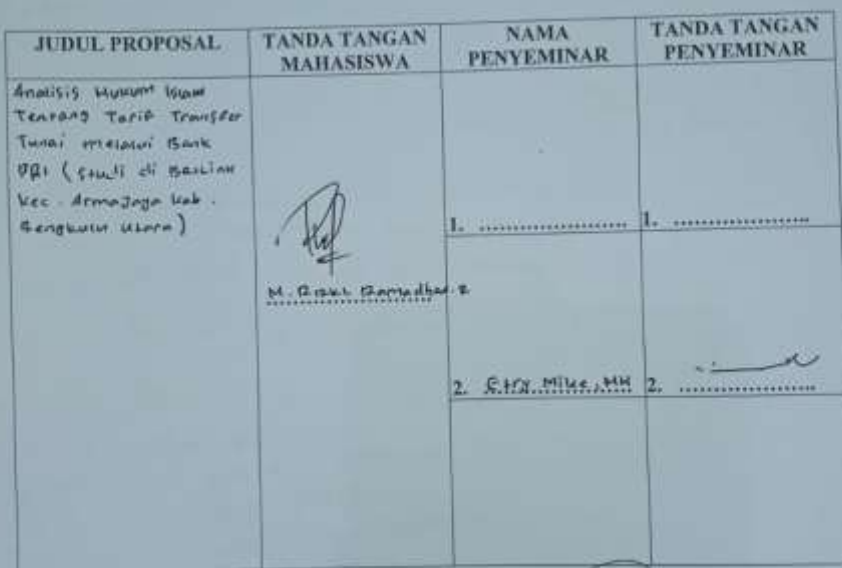 JUDUL PROPOSAL
TANDA TANGAN
MAHASISWA
NAMA
PENYEMINAR
TANDA TANGAN
PENYEMINAR
Analisis Hukum Islam
Tentang Tarif Transfer
Tunai melalui Bank
BRI (Studi di
Kec. Armajaya Kab.
Bengkulu Utara)
M. Rizki Ramadhan. R
1. .....................
1. ...................
2. Etry Mike, MH
2. ...................